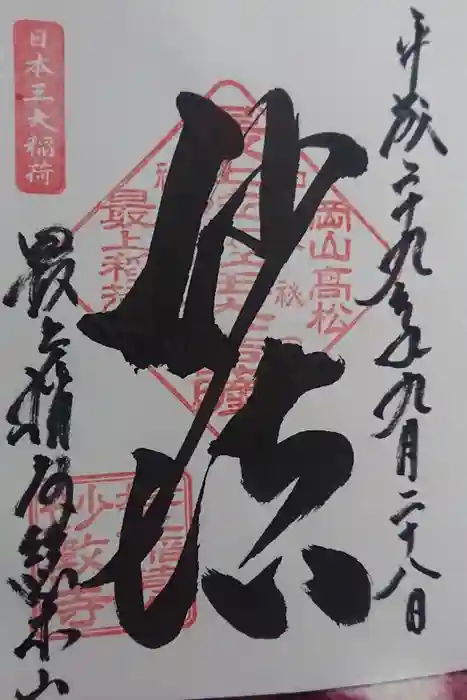 平成二十九年九月二十八日
妙法
日本三大稲荷
最上稲荷総本山
岡山高松
最上稲荷
妙教寺